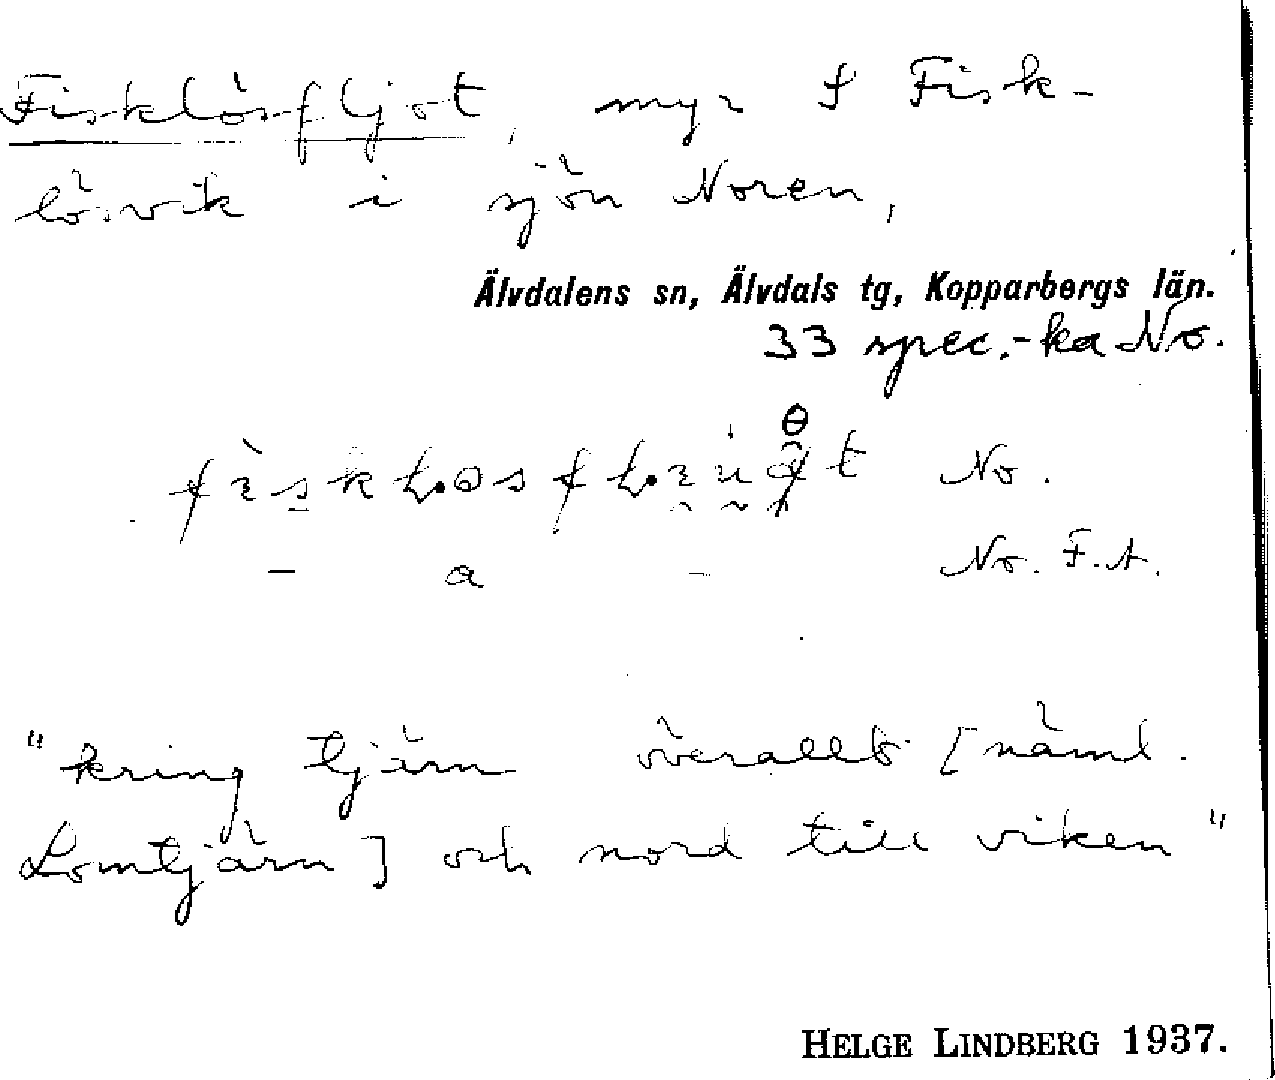 Fisklösfljot, myr S Fisk-
lösvik i sjön Noren,
Älvdalens sn, Älvdals tg, Kopparbergs län.
33 spec.-ka No.
No.
- a - No. F.A.
"kring tjärn överallt [näml.
Lomtjärn] och nord till viken"
HELGE LINDBERG 1937.